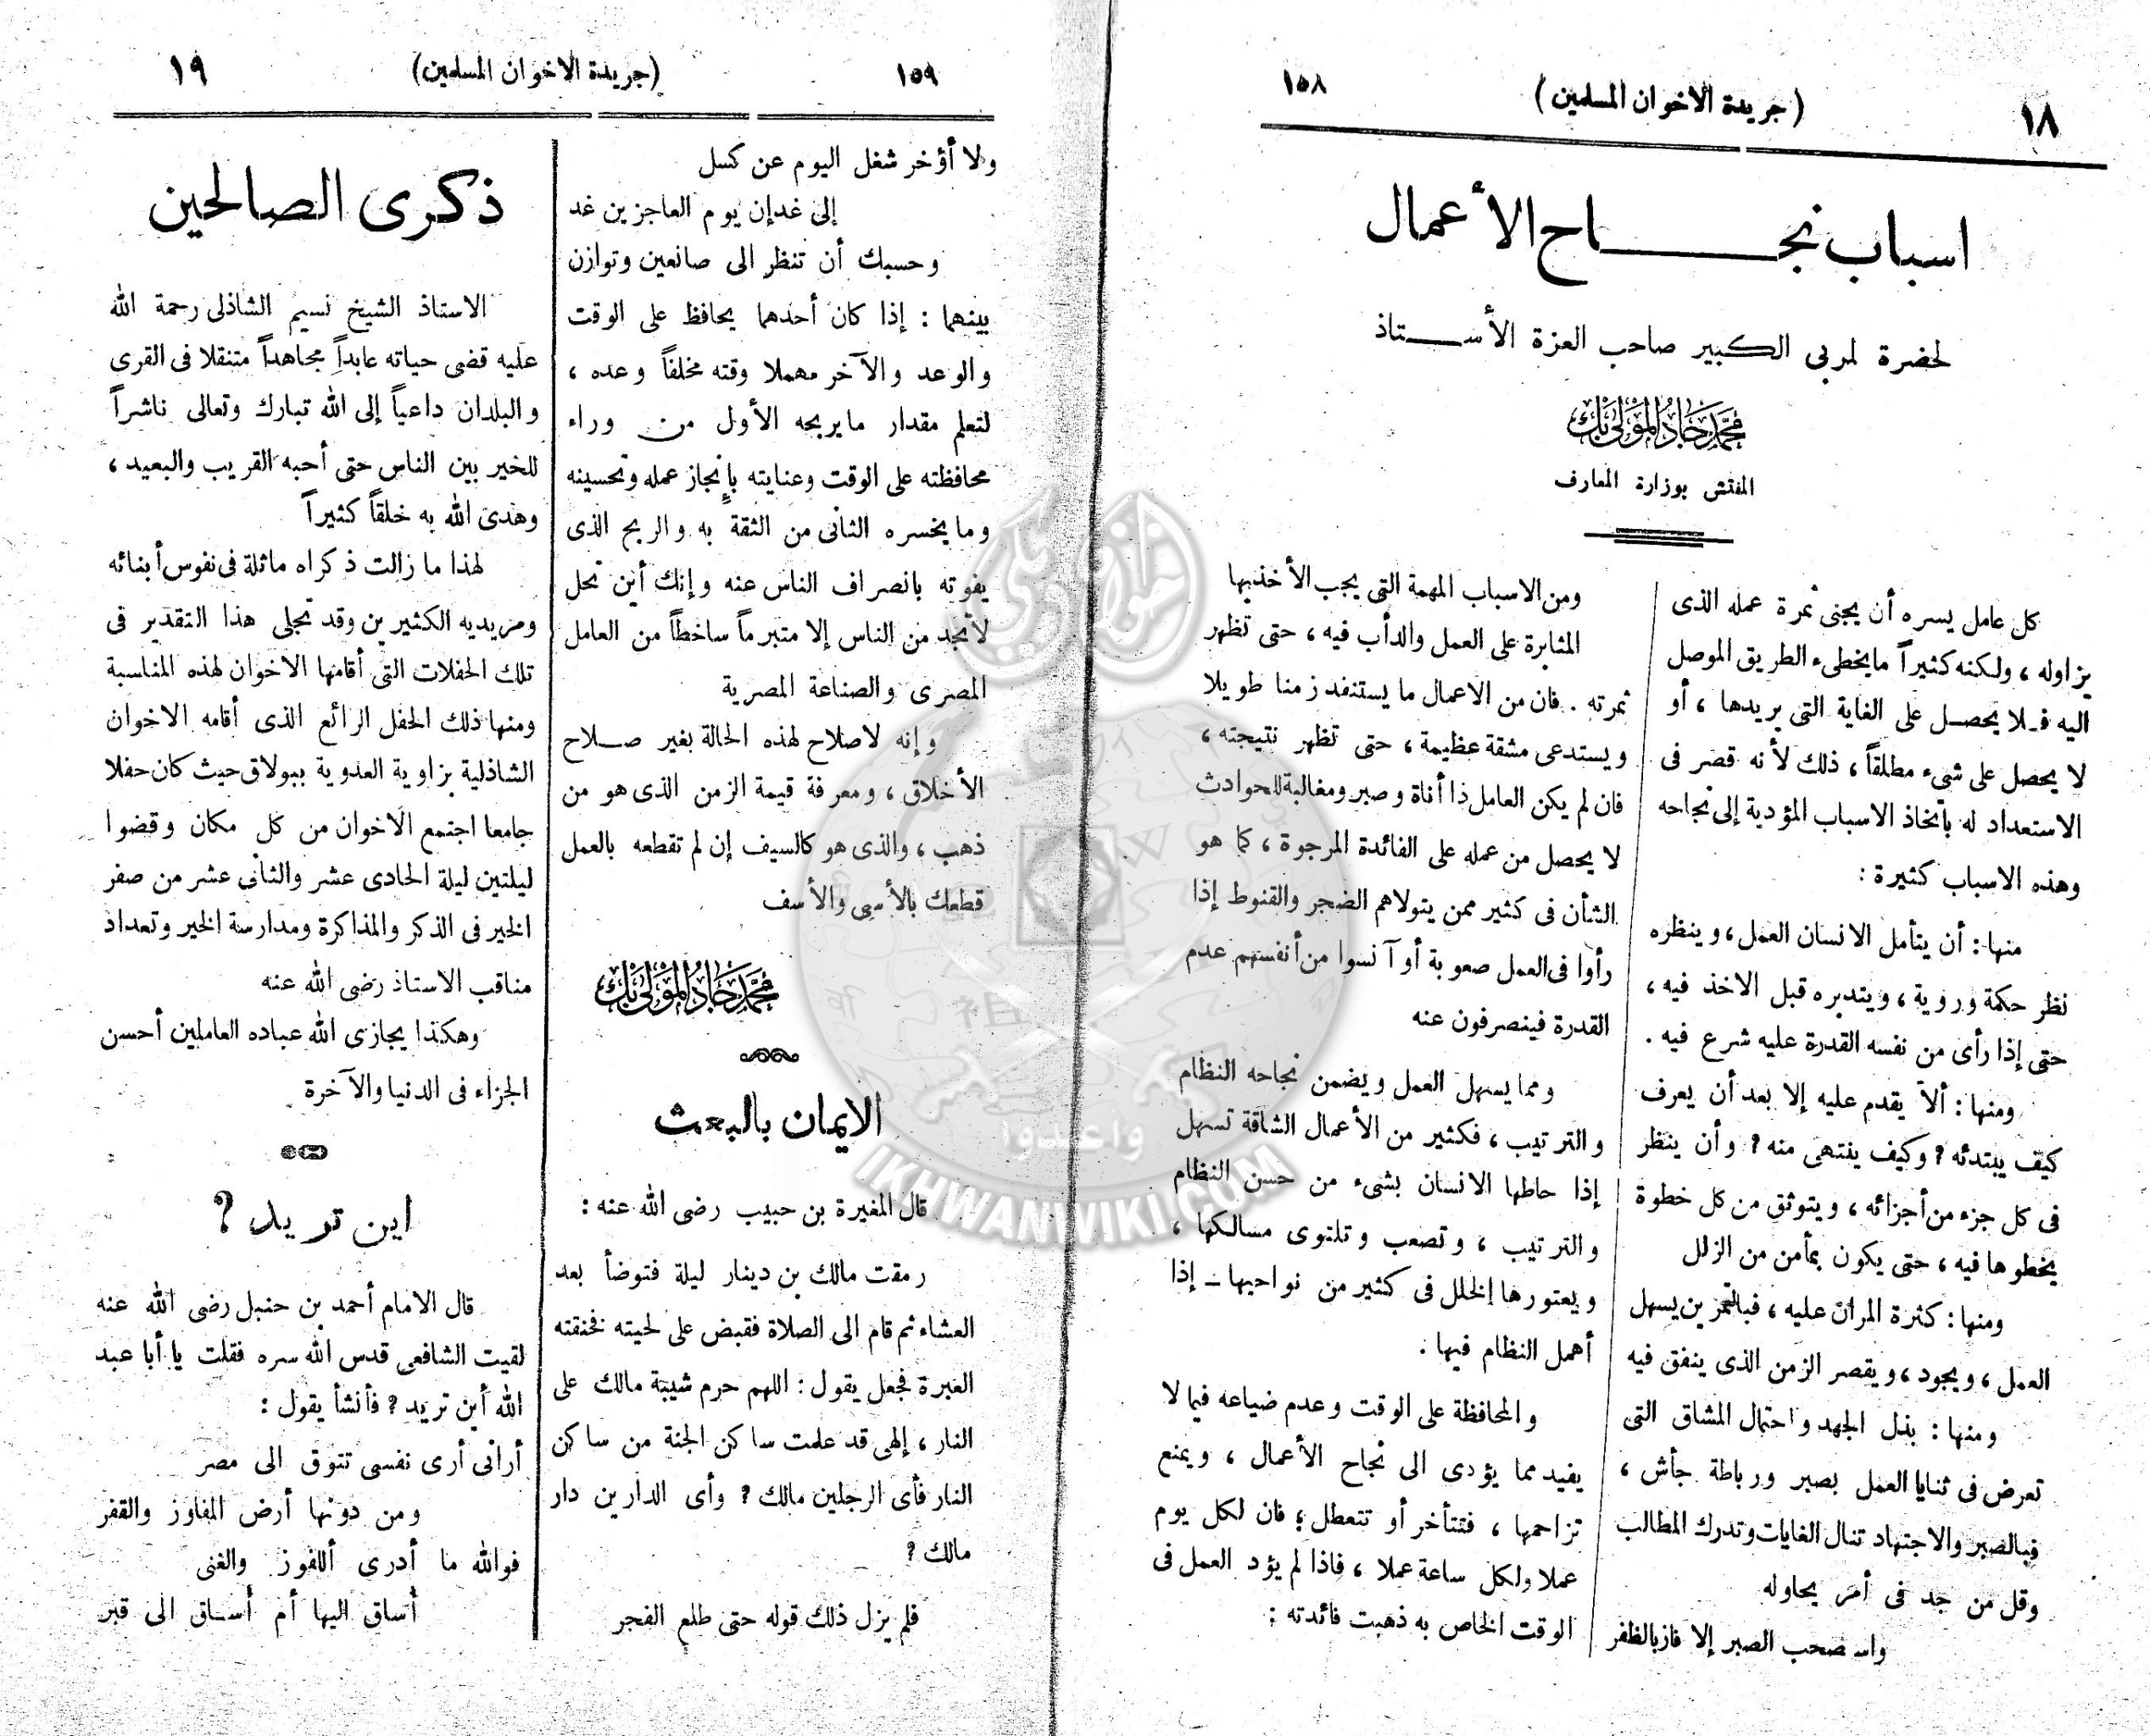 ١٨
(جريدة الاخوان المسلمين)
١٥٨
اسباب نجاح الأعمال
لحضرة لمربى الكبير صاحب العزة الأستاذ
محمد جاد المولى بك
المفتش بوزارة المعارف
كل عامل يسره أن يجنى ثمرة عمله الذى
يزاوله ، ولكنه كثيراً ما يخطىء الطريق الموصل
اليه فلا يحصل على الغاية التى يريدها ، أو
لا يحصل على شىء مطلقاً ، ذلك لأنه قصر فى
الاستعداد له باتخاذ الاسباب المؤدية إلى نجاحه
وهذه الاسباب كثيرة :
منها : أن يتأمل الانسان العمل ، وينظره
نظر حكمة وروية ، ويتدبره قبل الاخذ فيه ،
حتى إذا رأى من نفسه القدرة عليه شرع فيه .
ومنها : ألا يقدم عليه إلا بعد أن يعرف
كيف يبتدئه ؟ وكيف ينتهى منه ؟ وأن ينظر
فى كل جزء من أجزائه ، ويتوثق من كل خطوة
يخطوها فيه ، حتى يكون بمأمن من الزلل
ومنها : كثرة المران عليه ، فبالتمرين يسهل
العمل ، ويجود ، ويقصر الزمن الذى ينفق فيه
ومنها : بذل الجهد واحتمال المشاق التى
تعرض فى ثنايا العمل بصبر ورباطة جأش ،
فبالصبر والاجتهاد تنال الغايات وتدرك المطالب
وقل من جد فى أمر يحاوله
واستصحب الصبر إلا فاز بالظفر
ومن الاسباب المهمة التى يجب الأخذ بها
المثابرة على العمل والدأب فيه ، حتى تظهر
ثمرته . فان من الاعمال ما يستنفد زمنا طويلا
ويستدعى مشقة عظيمة ، حتى تظهر نتيجته ،
فان لم يكن العامل ذا أناة وصبر ومغالبة للحوادث
لا يحصل من عمله على الفائدة المرجوة ، كما هو
الشأن فى كثير ممن يتولاهم الضجر والقنوط إذا
رأوا فى العمل صعوبة أو آنسوا من أنفسهم عدم
القدرة فينصرفون عنه
ومما يسهل العمل ويضمن نجاحه النظام
والترتيب ، فكثير من الأعمال الشاقة تسهل
إذا حاطها الانسان بشىء من حسن النظام
والترتيب ، وتصعب وتلتوى مسالكها ،
ويعتورها الخلل فى كثير من نواحيها - إذا
أهمل النظام فيها .
والمحافظة على الوقت وعدم ضياعه فيما لا
يفيد مما يؤدى الى نجاح الأعمال ، ويمنع
تزاحمها ، فتتأخر أو تتعطل ؛ فان لكل يوم
عملا ولكل ساعة عملا ، فاذا لم يؤد العمل فى
الوقت الخاص به ذهبت فائدته ;
١٥٩
(جريدة الاخوان المسلمين)
١٩
ولا أؤخر شغل اليوم عن كسل
إلى غد إن يوم العاجزين غد
وحسبك أن تنظر الى صانعين وتوازن
بينهما : إذا كان أحدهما يحافظ على الوقت
والوعد والآخر مهملا وقته مخلفاً وعده ،
لتعلم مقدار ما يربحه الأول من وراء
محافظته على الوقت وعنايته بإنجاز عمله وتحسينه
وما يخسره الثانى من الثقة به والربح الذى
يفوته بانصراف الناس عنه وإنك أين تحل
لا تجد من الناس إلا متبرماً ساخطاً من العامل
المصرى والصناعة المصرية
وإنه لاصلاح لهذه الحالة بغير صلاح
الأخلاق ، ومعرفة قيمة الزمن الذى هو من
ذهب ، والذى هو كالسيف إن لم تقطعه بالعمل
قطعك بالأسى والأسف
محمد جاد المولى بك
الايمان بالبعث
قال المغيرة بن حبيب رضى الله عنه :
رمقت مالك بن دينار ليلة فتوضأ بعد
العشاء ثم قام الى الصلاة فقبض على لحيته فخنقته
العبرة فجعل يقول : اللهم حرم شيبة مالك على
النار ، إلهى قد علمت ساكن الجنة من ساكن
النار فأى الرجلين مالك ؟ وأى الدارين دار
مالك ؟
فلم يزل ذلك قوله حتى طلع الفجر
ذكرى الصالحين
الاستاذ الشيخ نسيم الشاذلى رحمة الله
عليه قضى حياته عابداً مجاهداً متنقلا فى القرى
والبلدان داعياً إلى الله تبارك وتعالى ناشراً
للخير بين الناس حتى أحبه القريب والبعيد ،
وهدى الله به خلقاً كثيراً
لهذا ما زالت ذكراه ماثلة فى نفوس أبنائه
ومريديه الكثيرين وقد تجلى هذا التقدير فى
تلك الحفلات التى أقامها الاخوان لهذه المناسبة
ومنها ذلك الحفل الرائع الذى أقامه الاخوان
الشاذلية بزاوية العدوية ببولاق حيث كان حفلا
جامعا اجتمع الاخوان من كل مكان وقضوا
ليلتين ليلة الحادى عشر والثانى عشر من صفر
الخير فى الذكر والمذاكرة ومدارسة الخير وتعداد
مناقب الاستاذ رضى الله عنه
وهكذا يجازى الله عباده العاملين أحسن
الجزاء فى الدنيا والآخرة
اين تريد ؟
قال الامام أحمد بن حنبل رضى الله عنه
لقيت الشافعى قدس الله سره فقلت يا أبا عبد
الله أين تريد ؟ فأنشأ يقول :
أرانى أرى نفسى تتوق الى مصر
ومن دونها أرض المفاوز والقفر
فوالله ما أدرى أللفوز والغنى
أساق اليها أم أساق الى قبر
واعدوا
IKHWANWIKI.COM